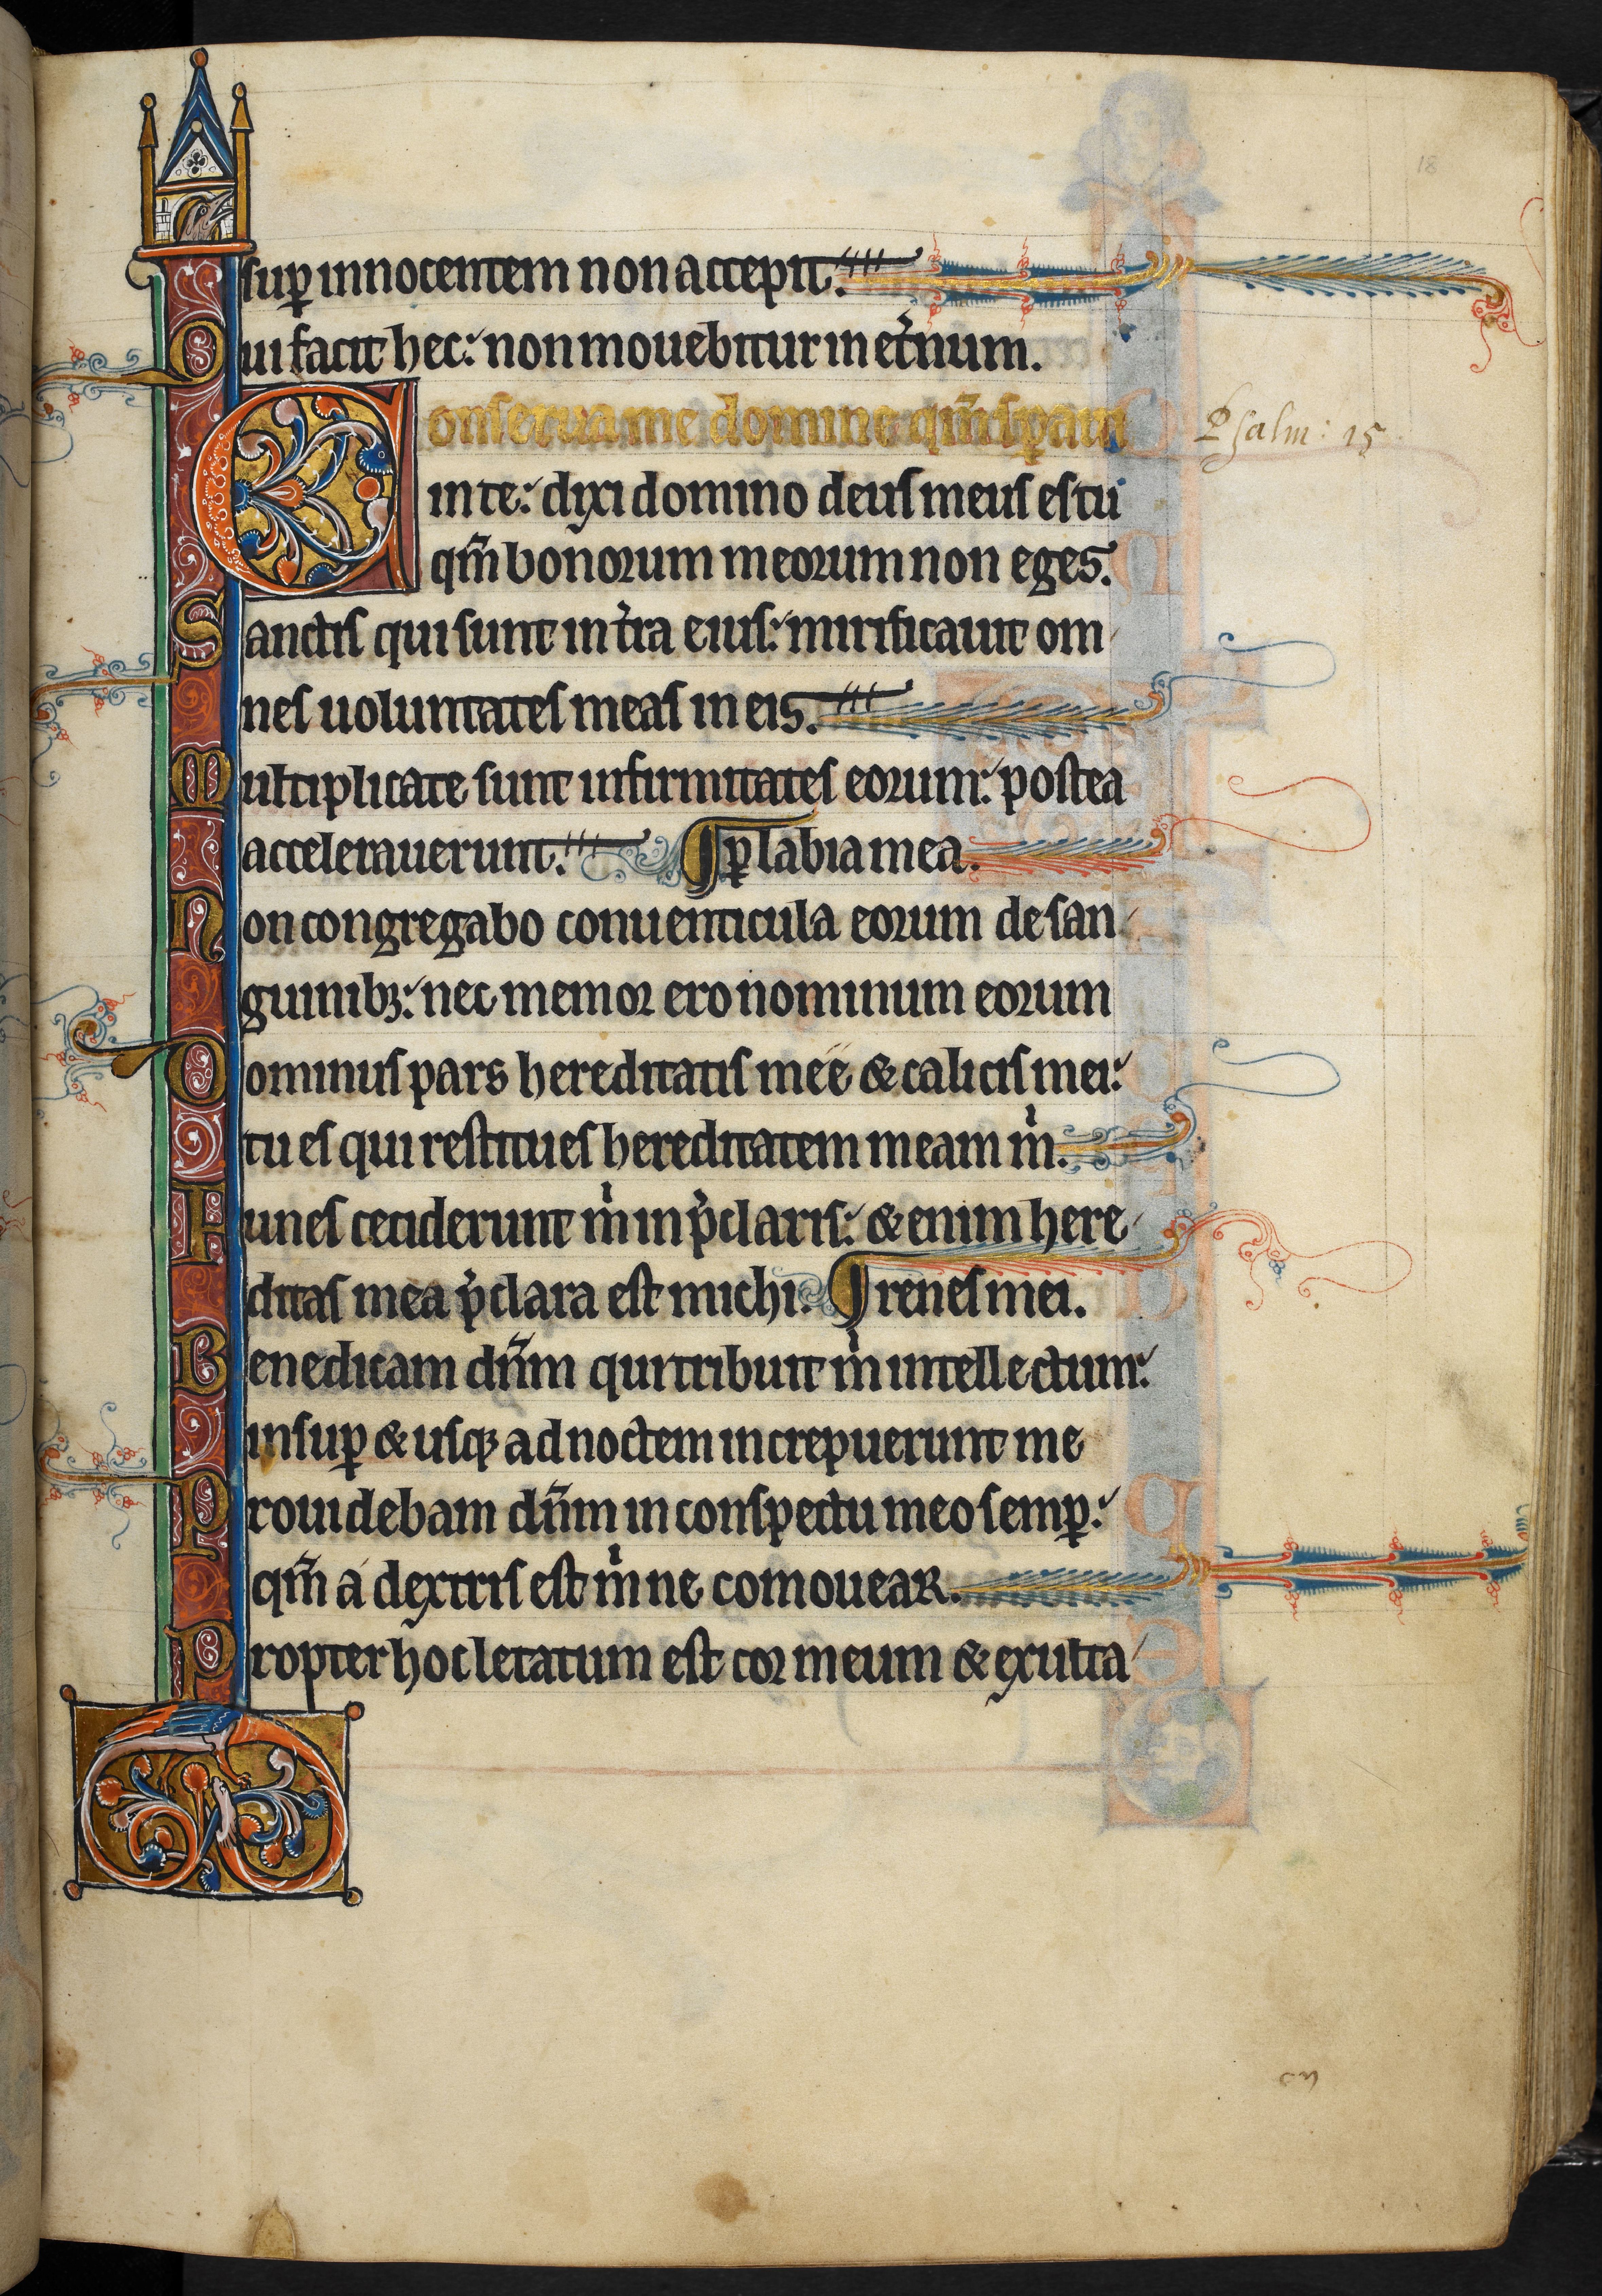 18
sup̱ innocentem non accepit.
Qui facit hec: non mouebitur in et̉num.
Conserua me domine qm̄ sp̱aui
Psalm: 15
in te: dixi domino deus meus es tu
qm̄ bonorum meorum non eges.
Sanctis qui sunt in t̉ra eius: mirificauit om
nes uoluntates meas in eis.
Multiplicate sunt infirmitates eorum: postea
accelerauerunt. ¶ p̱ labia mea.
Non congregabo conuenticula eorum de san
guinibꝫ: nec memor ero nominum eorum
Dominus pars hereditatis mee & calicis mei:
tu es qui restitues hereditatem meam m̉.
Funes ceciderunt m̉ in p̉claris: & enim here
ditas mea p̉clara est michi. ¶ renes mei.
Benedicam dn̄m qui tribuit m̉ intellectum:
insup̱ & usqꝫ ad noctem increpuerunt me
Prouidebam dn̄m in conspectu meo semp̱:
qm̄ a dextris est m̉ ne comouear.
Propter hoc letatum est cor meum & exulta